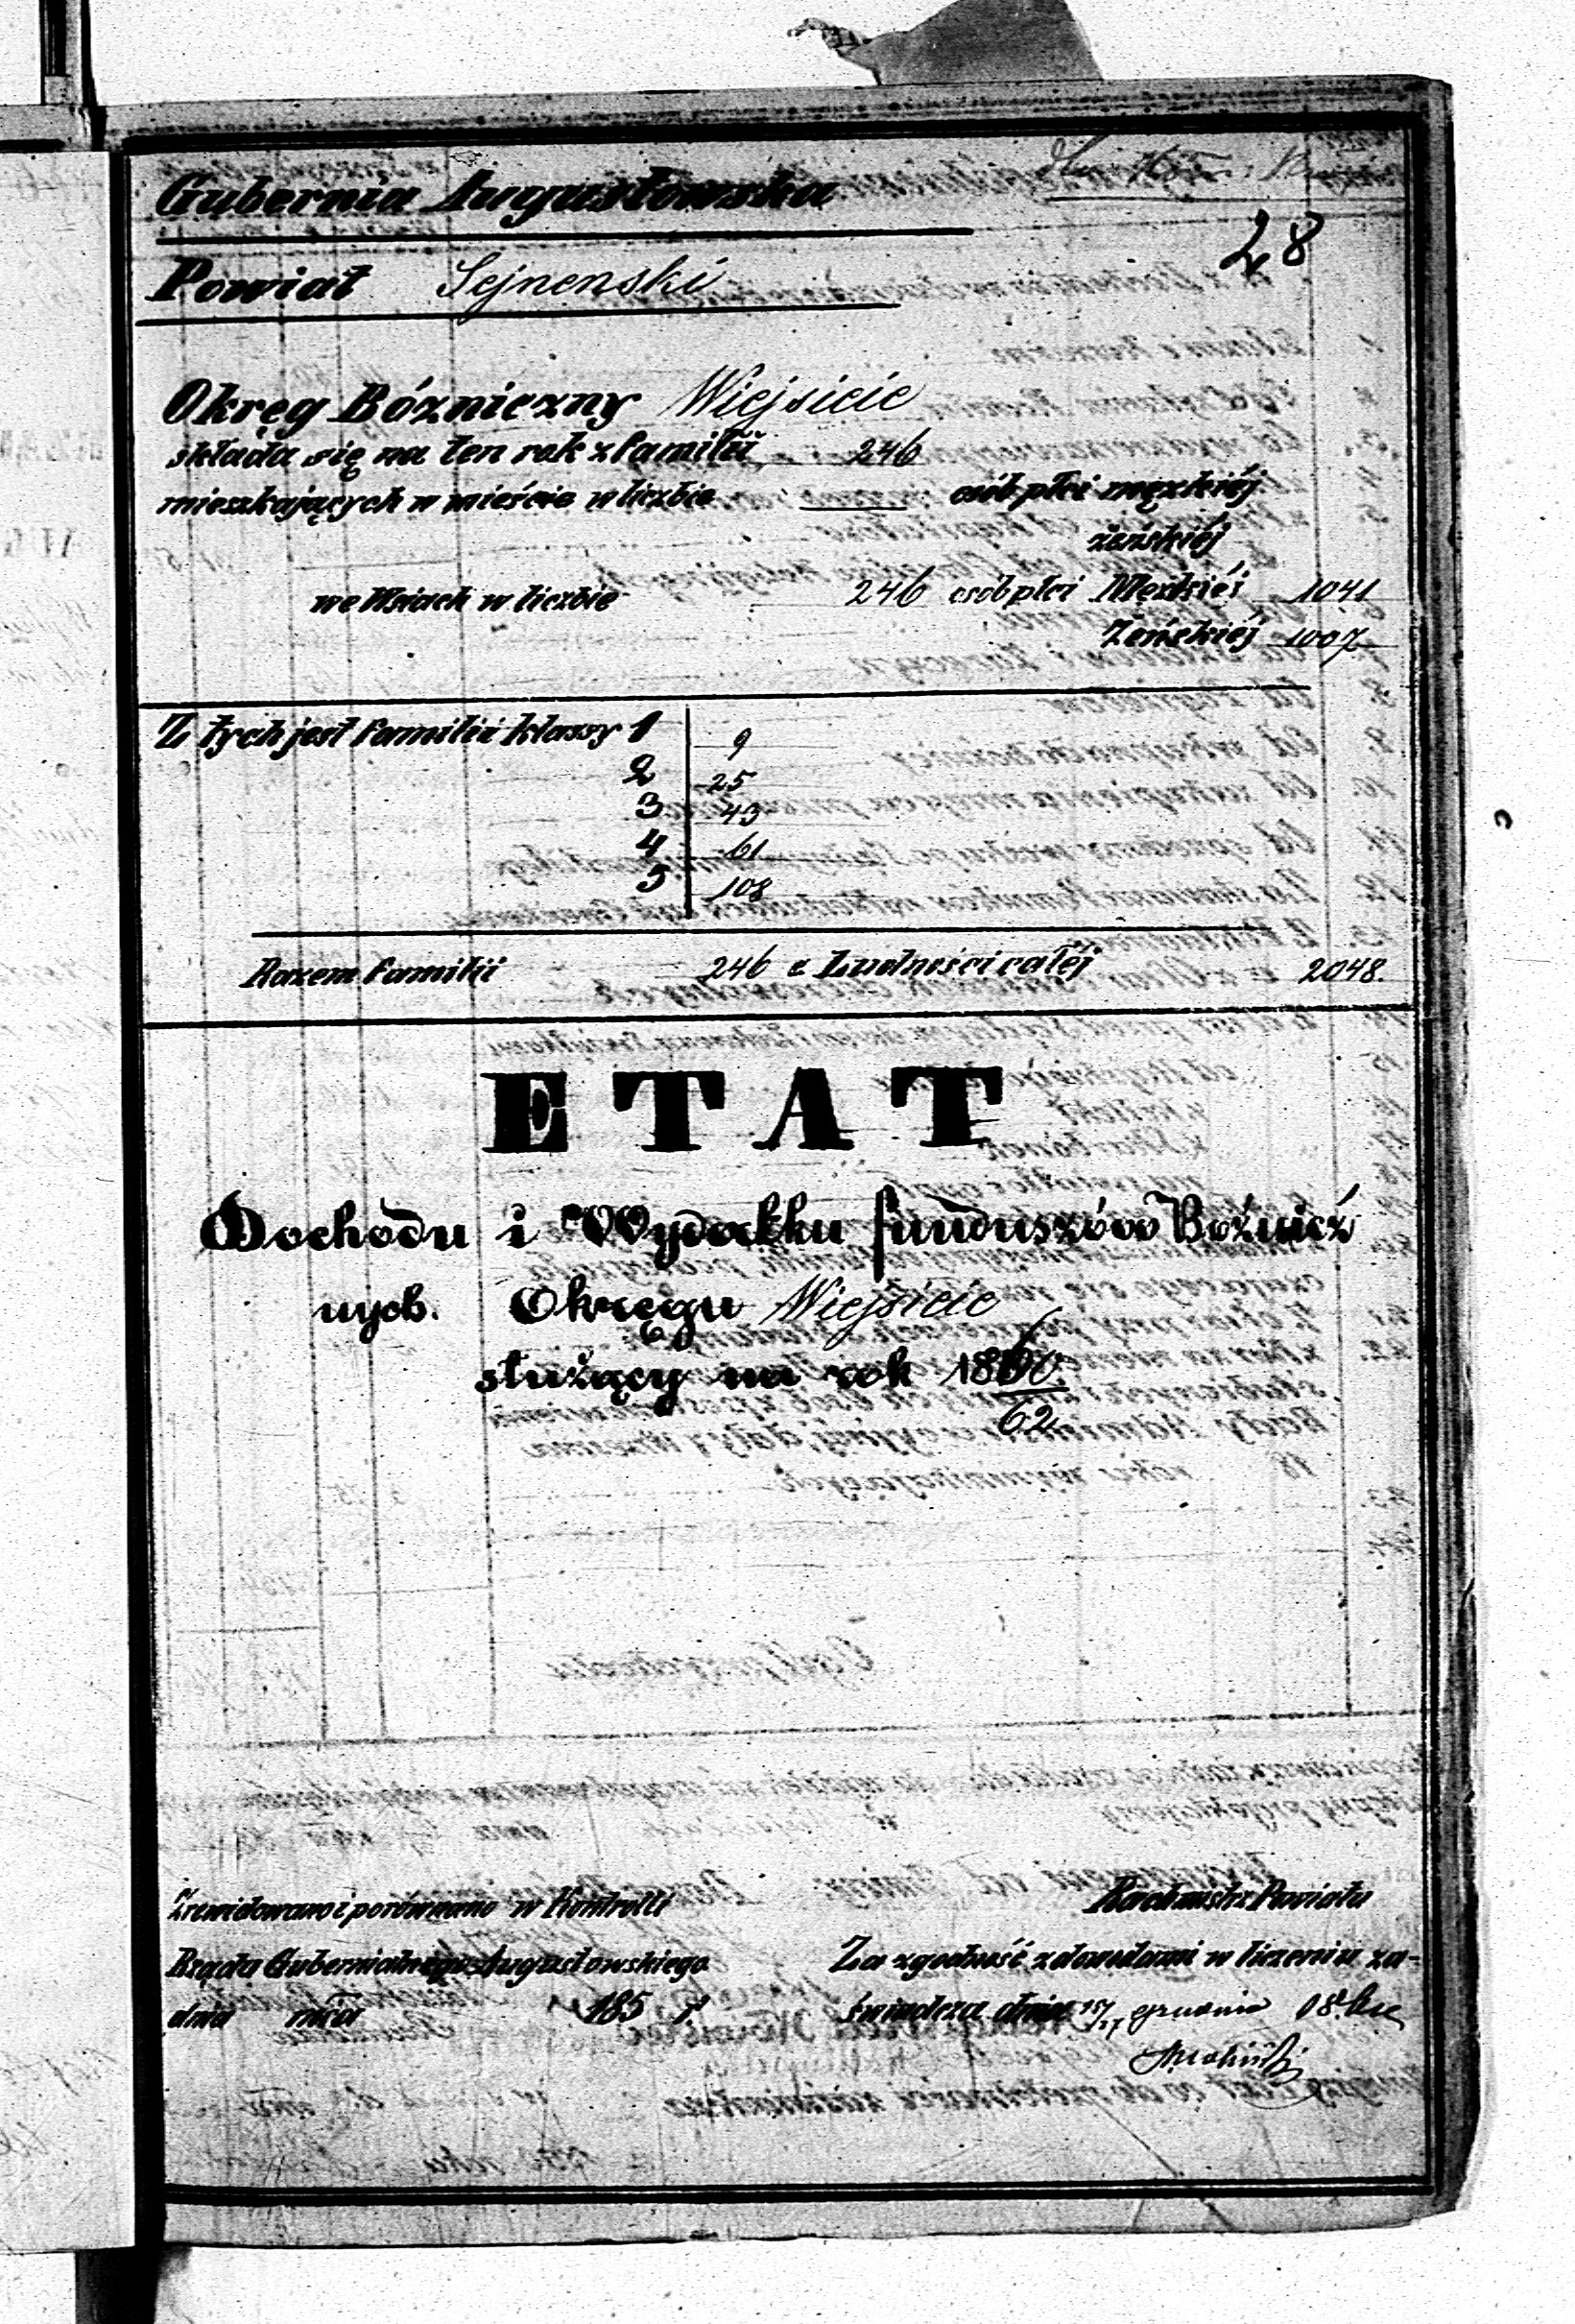 Gubernia Augustowska
28
Powiat Sejnenski
Okręg Bózniczny Wiejsicie
składa się na ten rok z familii 246
mieszkających w mieście w liczbie osób płci męzkiéj
żeńskiéj
we Wsiach w liczbie 246 osób płci Męzkiéj 1041
Żeńskiéj 1007
Z tych jest familii klassy 1 9
2 25
3 43
4 61
5 108
Razem familii 246 z Ludności całéj 2048.
ETAT
Dochodu i Wydatku funduszów Bożnicz
nych. Okręgu Wiejsicie
służący na rok 1860/62
Zrewidowano i porównano w Kontrolli Rachmistrz Powiatu
Rządu Gubernialnego Augustowskiego Za zgodność z dowodami w liczeniu za-
dnia mca 185 r. świadcza dnia 15/27 grudnia